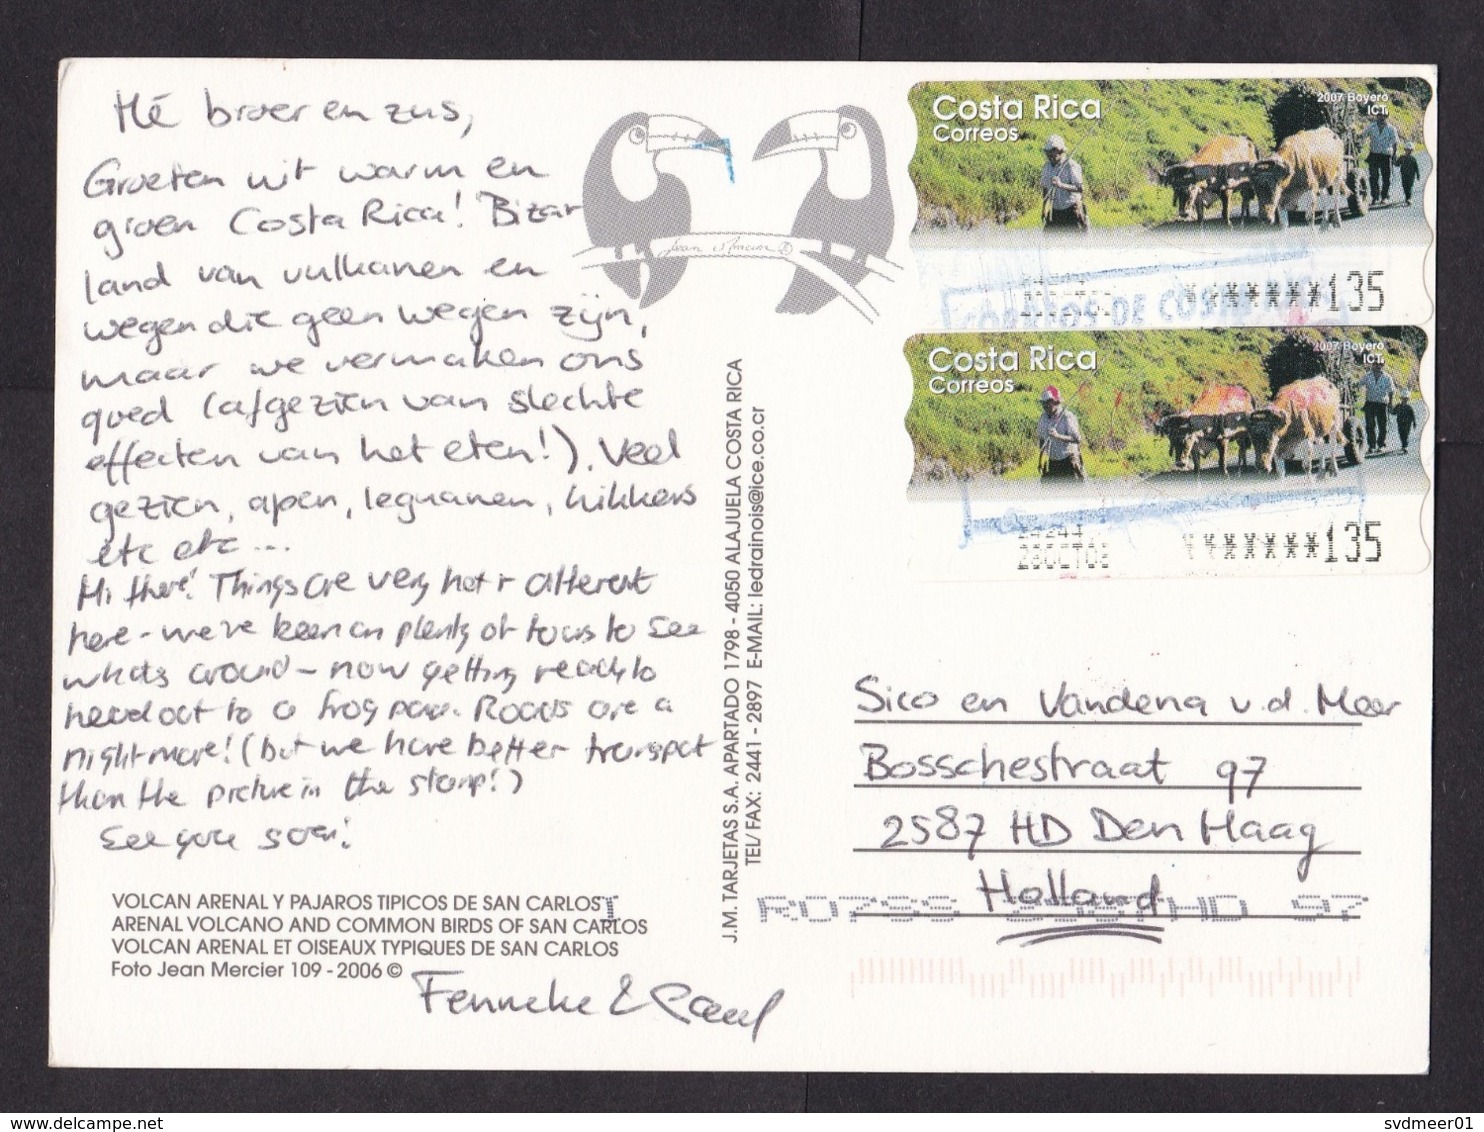 Hé broer en zus,
Groeten uit warm en
groen Costa Rica! Bizar
land van vulkanen en
wegen die geen wegen zijn,
maar we vermaken ons
goed (afgezien van slechte
effecten van het eten!). Veel
gezien, apen, leguanen, kikkers
etc etc...
Hi there! Things are very hot + different
here - we've been on plenty of tours to see
whats around - now getting ready to
head out to a frog pond. Roads are a
nightmare! (but we have better transport
than the picture in the stamp!)
See you soon!
VOLCAN ARENAL Y PAJAROS TIPICOS DE SAN CARLOS
ARENAL VOLCANO AND COMMON BIRDS OF SAN CARLOS
VOLCAN ARENAL ET OISEAUX TYPIQUES DE SAN CARLOS
Foto Jean Mercier 109 - 2006 ©
Fenneke & Paul
J.M. TARJETAS S.A. APARTADO 1798 - 4050 ALAJUELA COSTA RICA
TEL/FAX: 2441 - 2897 E-MAIL: ledrainois@ice.co.cr
Costa Rica
Correos
2007 Boyero
ICT.
*******135
CORREOS DE COSTA RICA
Costa Rica
Correos
2007 Boyero
ICT.
*******135
Sico en Vandena v.d. Meer
Bosschestraat 97
2587 HD Den Haag
Holland
HD 97
svdmeer01